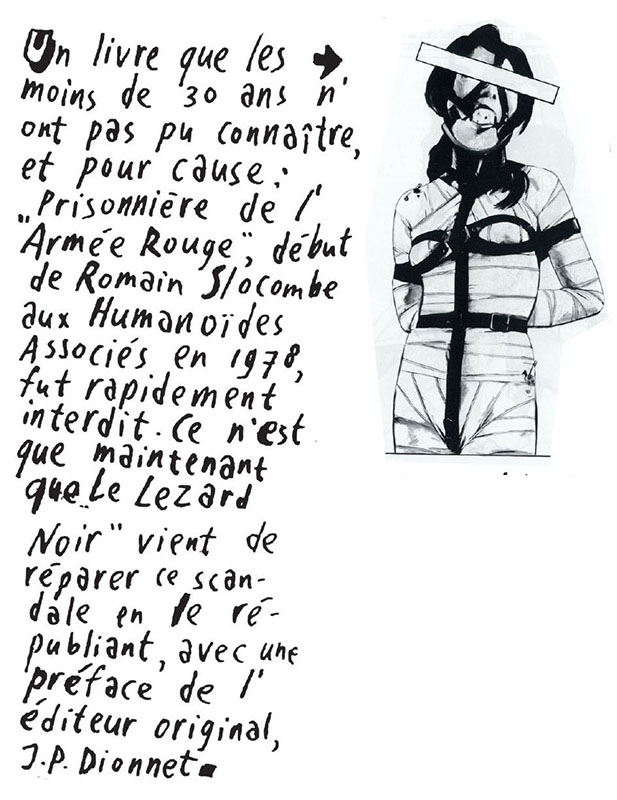 Un livre que les →
moins de 30 ans n'
ont pas pu connaître,
et pour cause :
„Prisonnière de l'
Armée Rouge", début
de Romain Slocombe
aux Humanoïdes
Associés en 1978,
fut rapidement
interdit. Ce n'est
que maintenant
que „Le Lezard
Noir" vient de
réparer ce scan-
dale en le ré-
publiant, avec une
préface de l'
éditeur original,
J.P. Dionnet.